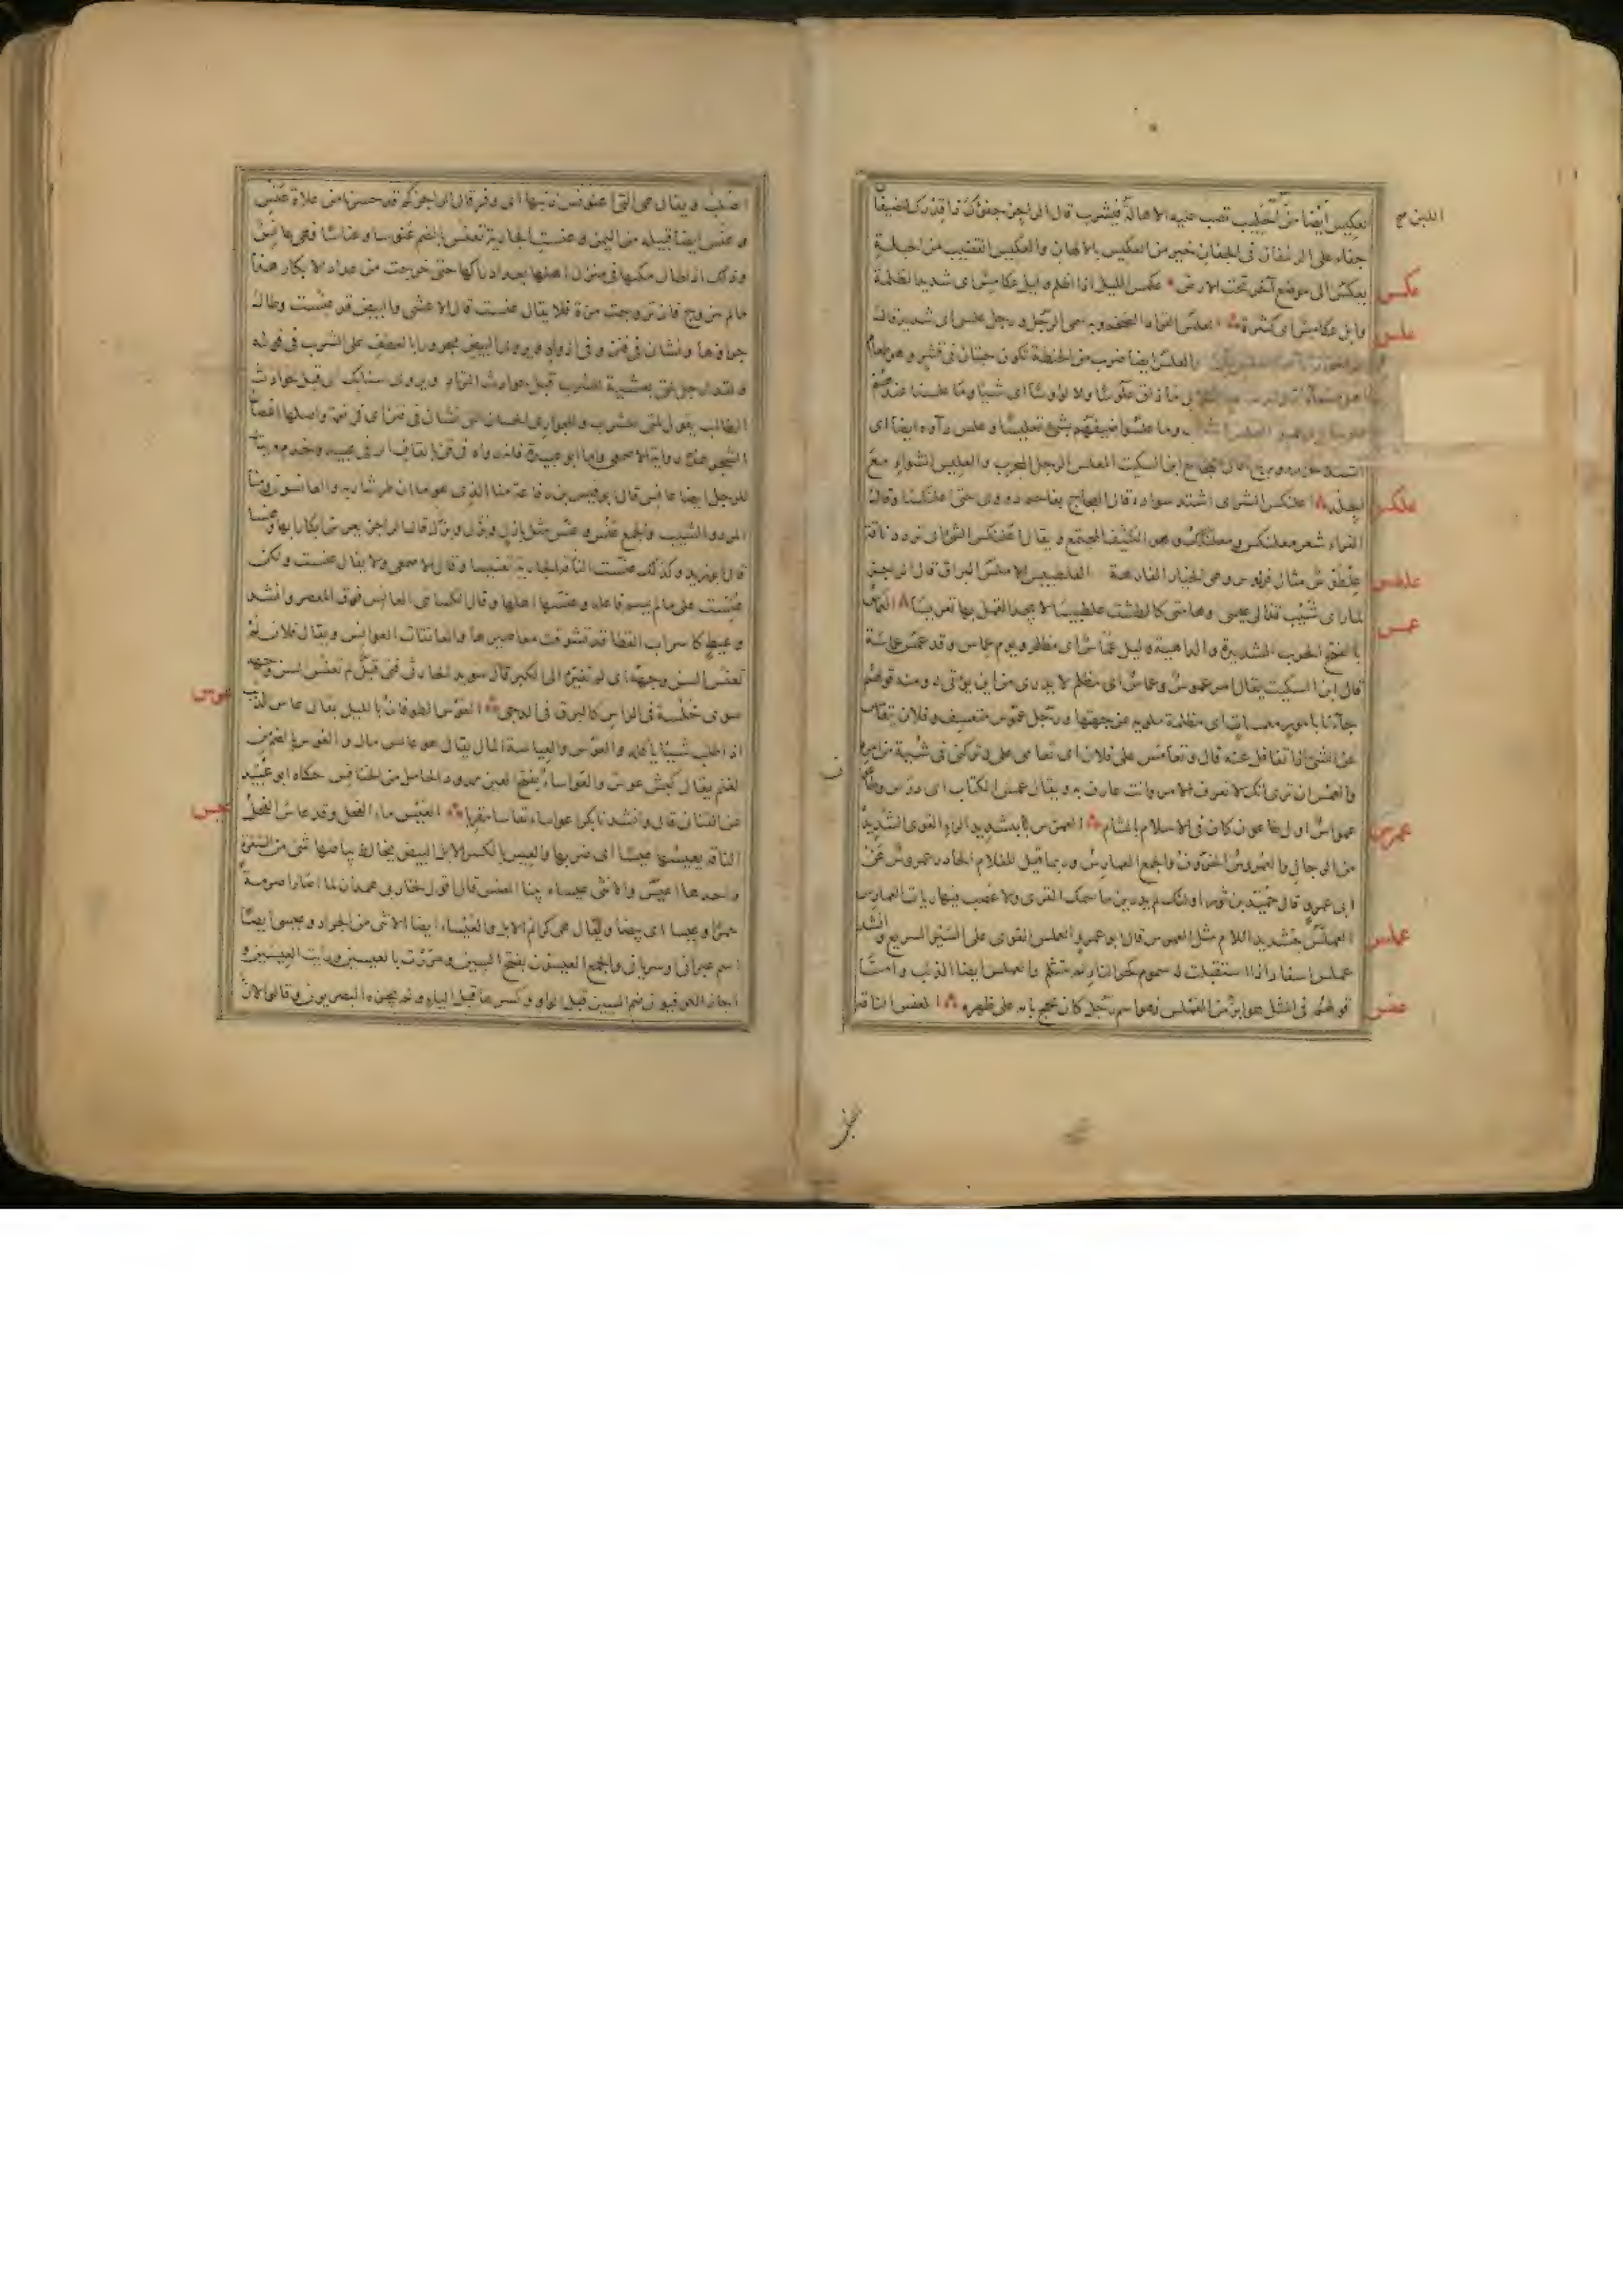 اللبن صح
العكيس أيضا من الحليب تصب عليه الاهالة فيشرب قال الراجز جفؤك ذا قدرك للضيفان
جفاء على الرغفان في الجفان خير من العكيس بالالبان والعكيس القضيب من الحبلة
يعكس الى موضع آخر تحت الارض عكمس الليل اذا اظلم وابل عكامس اى شديد الظلمة
عكمس
وابل عكامس اى كثيرة العلس القراد الضخم وبه سمى الرجل ورجل علس اى شديد قال
علس
والعلس ايضا ضرب من الحنطة تكون حبتان في قشر وهو طعام
ما ذاق علوسا ولا لؤوسا اى شيئا وما علسنا عندهم
وما علسوا ضيفهم بشئ تعليسا وعلس داؤه ايضا اى
اشتد ابن السكيت المعلس الرجل المجرب والعليس الشواء مع
الجلد اعلنكس الشعر اى اشتد سواده قال العجاج بفاحم دووى حتى اعلنكسا وقال
علكس
الفراء شعر معلنكس ومعلنكك وهو الكثيف المجتمع ويقال اعلنكس الشئ اى تردد ناقة
علطوس مثال فردوس وهى الخيار الفارهة العلطبيس الاملس البراق قال الراجز
لما رأى شيب قذالى عيسى وهامتى كالطست علطبيسا لا يجد القمل بها تعريسا العماس
عمس
بالفتح الحرب الشديدة والداهية وليل عماس اى مظلم ويوم عماس وقد عمس عماسة
قال ابن السكيت يقال امر عموس وعماس اى مظلم لا يدرى من اين يؤتى له ومنه قولهم
جاءنا بامور معمسات اى مظلمة ملوية عن جهتها ورجل عموس متعسف وفلان يتعامس
عن الشئ اذا تغافل عنه قال وتعامس على فلان اى تعامى على فتركنى في شبهة من امره
والعمس ان ترى انك لا تعرف الامر وانت عارف به ويقال عمس الكتاب اى درس وطاعون
عمواس اول طاعون كان في الاسلام بالشام العمرس بتشديد الراء القوى الشديد
عمرس
من الرجال والعمروس الخروف والجمع العمارس وربما قيل للغلام الحادر عمروس عن
ابى عمرو قال حميد بن ثور اولئك لم يدرين ما سمك القرى ولا عصب فيها ريات العمارس
العملس بتشديد اللام مثل العمرس قال ابو عمرو العملس القوى على السير السريع وانشد
عملس
عملس اسفار اذا استقبلت له سموم كحر النار لم يتلثم والعملس ايضا الذئب وامـا
قولهم في المثل هو ابر من العملس فهو اسم رجل كان يحج بامه على ظهره العنس الناقة
عنس
الصلبة ويقال هى التى اعنونس ذنبها اى وفر قال الراجز كم قد حسرنا من علاة عنس
وعنس ايضا قبيلة من اليمن وعنست الجارية تعنس بالضم عنوسا وعناسا فهى عانس
وذلك اذا طال مكثها في منزل اهلها بعد ادراكها حتى خرجت من عداد الابكار هذا
ما لم تتزوج فان تزوجت مرة فلا يقال عنست قال الاعشى والبيض قد عنست وطال
جراؤها ونشأن في فنن وفي اذواد ويروى البيض مجرورا بالعطف على الشرب في قوله
ولقد ارجل لمتى بعشية للشرب قبل حوادث المرتاد ويروى سنابك اى قبل حوادث
الطالب يقول لمتى للشرب وللجوارى الحسان اللاتى نشأن في فنن اى في نعمة واصلها اغصان
الشجر هذه رواية الاصمعى واما ابو عبيدة فانه رواه في قن بالقاف اى في عبيد وخدم ويقال
للرجل ايضا عانس قال ابو قيس بن رفاعة منا الذى هو ما ان طر شاربه والعانسون ومنا
المرد والشيب والجمع عنس وعنس مثل بازل وبزل وبزل قال الراجز يعرس ابكارا بها وعنسا
قال ابو زيد وكذلك عنست الجارية تعنيسا وقال الاصمعى ولا يقال عنست ولكن
عنست على ما لم يسم فاعله وعنسها اهلها وقال الكسائى العانس فوق المعصر وانشد
وعيط كاسراب القطا قد تشوفت معاصيرها والعاتقات العوانس ويقال فلان لم
تعنس السن وجهه اى لم تغيره الى الكبر قال سويد الحارثى فتى قبل لم تعنس السن وجهه
سوى خلسة في الراس كالبرق في الدجى العوس الطوفان بالليل يقال عاس الذئب
عوس
اذا طلب شيئا يأكله والعوس والعياسة المال يقال هو عائس مال والعوس بالضم ضرب من
الغنم يقال كبش عوسى والعواساء بفتح العين ممدود الحامل من الخنافس حكاه ابو عبيد
عن القنانى قال وانشد بكرا عواساء تفاسا مقربا العيس ماء الفحل وقد عاس الفحل
عيس
الناقة يعيسها عيسا اى ضربها والعيس بالكسر الابل البيض يخالط بياضها شئ من الشقرة
واحدها اعيس والانثى عيساء بينا العيس قال اقول لخاربى همدان لما اثارا صرمة
حمرا وعيسا اى بيضا ويقال هى كرائم الابل والعيساء ايضا الانثى من الجراد وعيسى ايضا
اسم عبرانى او سريانى والجمع العيسون بفتح السين ومررت بالعيسين ورأيت العيسين و
اجاز الكوفيون ضم السين قبل الواو وكسرها قبل الياء ولم يجزه البصريون وقالوا لان